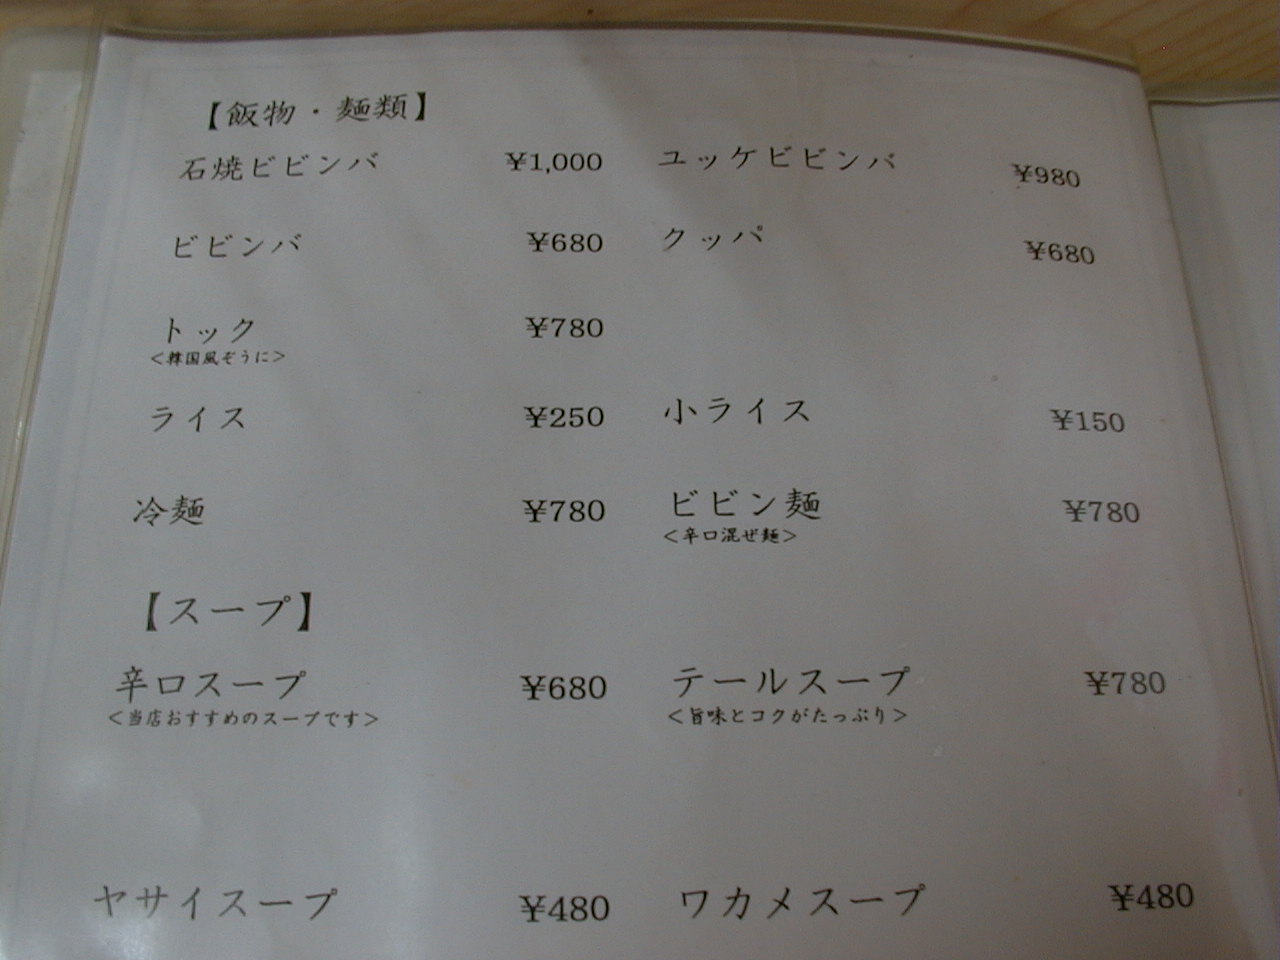 【飯物・麺類】
石焼ビビンバ ¥1,000 ユッケビビンバ ¥980
ビビンバ ¥680 クッパ ¥680
トック ¥780
<韓国風ぞうに>
ライス ¥250 小ライス ¥150
冷麺 ¥780 ビビン麺 ¥780
<辛口混ぜ麺>
【スープ】
辛口スープ ¥680 テールスープ ¥780
<当店おすすめのスープです> <旨味とコクがたっぷり>
ヤサイスープ ¥480 ワカメスープ ¥480